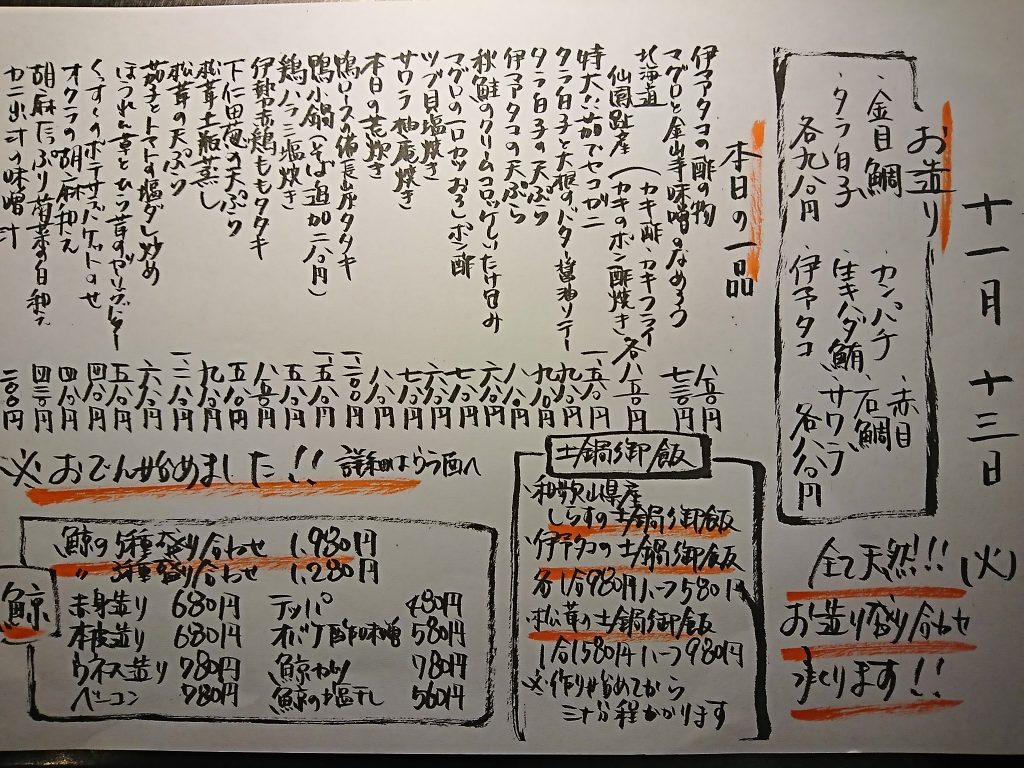 十一月十三日
(火)
お造り
・金目鯛
・タラ白子
各九八〇円
・カンパチ
・生キハダ鮪
・伊予タコ
・赤目
・石鯛
・サワラ
各八八〇円
全て天然!!!
お造り盛り合わせ
承ります!!
本日の一品
伊予タコの酢の物 八五〇円
マグロと金山寺味噌のなめろう 七三〇円
北海道
仙鳳趾産
(カキ酢・カキフライ
(カキのポン酢焼き 各八五〇円
特大ゆ茹でセコガニ 一、五八〇円
タラ白子と大根のバター醤油ソテー 九八〇円
タラ白子の天ぷら 九八〇円
伊予タコの天ぷら 八八〇円
秋鮭のクリームコロッケしいたけ包み 六八〇円
マグロの一口カツおろしポン酢 七八〇円
ツブ貝塩焼き 六八〇円
サワラ柚庵焼き 七八〇円
本日の荒炊き 八八〇円
鴨ロースの備長山庄タタキ 一、二〇〇円
鴨小鍋(そば追加二八〇円) 一、五八〇円
鶏ハラミ塩焼き 六五〇円
伊勢赤鶏ももタタキ 八五〇円
下仁田葱の天ぷら 五八〇円
松茸土瓶蒸し 九八〇円
松茸の天ぷら 一、二八〇円
茄子とトマトの塩ダレ炒め 六八〇円
ほうれん草とひら茸のガーリックバター 五八〇円
くんせいのポテサラバケットのせ 四八〇円
オクラの胡麻和え 四八〇円
胡麻たっぷり菊菜の白和え 四三〇円
カニ出汁の味噌汁 二〇〇円
※おでん始めました!! 詳細はうら面へ
土鍋御飯
・和歌山県産
しらすの土鍋御飯
・伊予タコの土鍋御飯
各1合980円ハーフ580円
・松茸の土鍋御飯
1合1580円ハーフ980円
※作り始めてから
三十分程かかります
鯨
鯨の5種盛り合わせ 1,980円
〃 3種盛り合わせ 1,280円
赤身造り 680円
本皮造り 680円
ウネス造り 780円
ベーコン 780円
テッパ 480円
オバケ酢味噌 580円
鯨カツ 780円
鯨の塩干し 560円